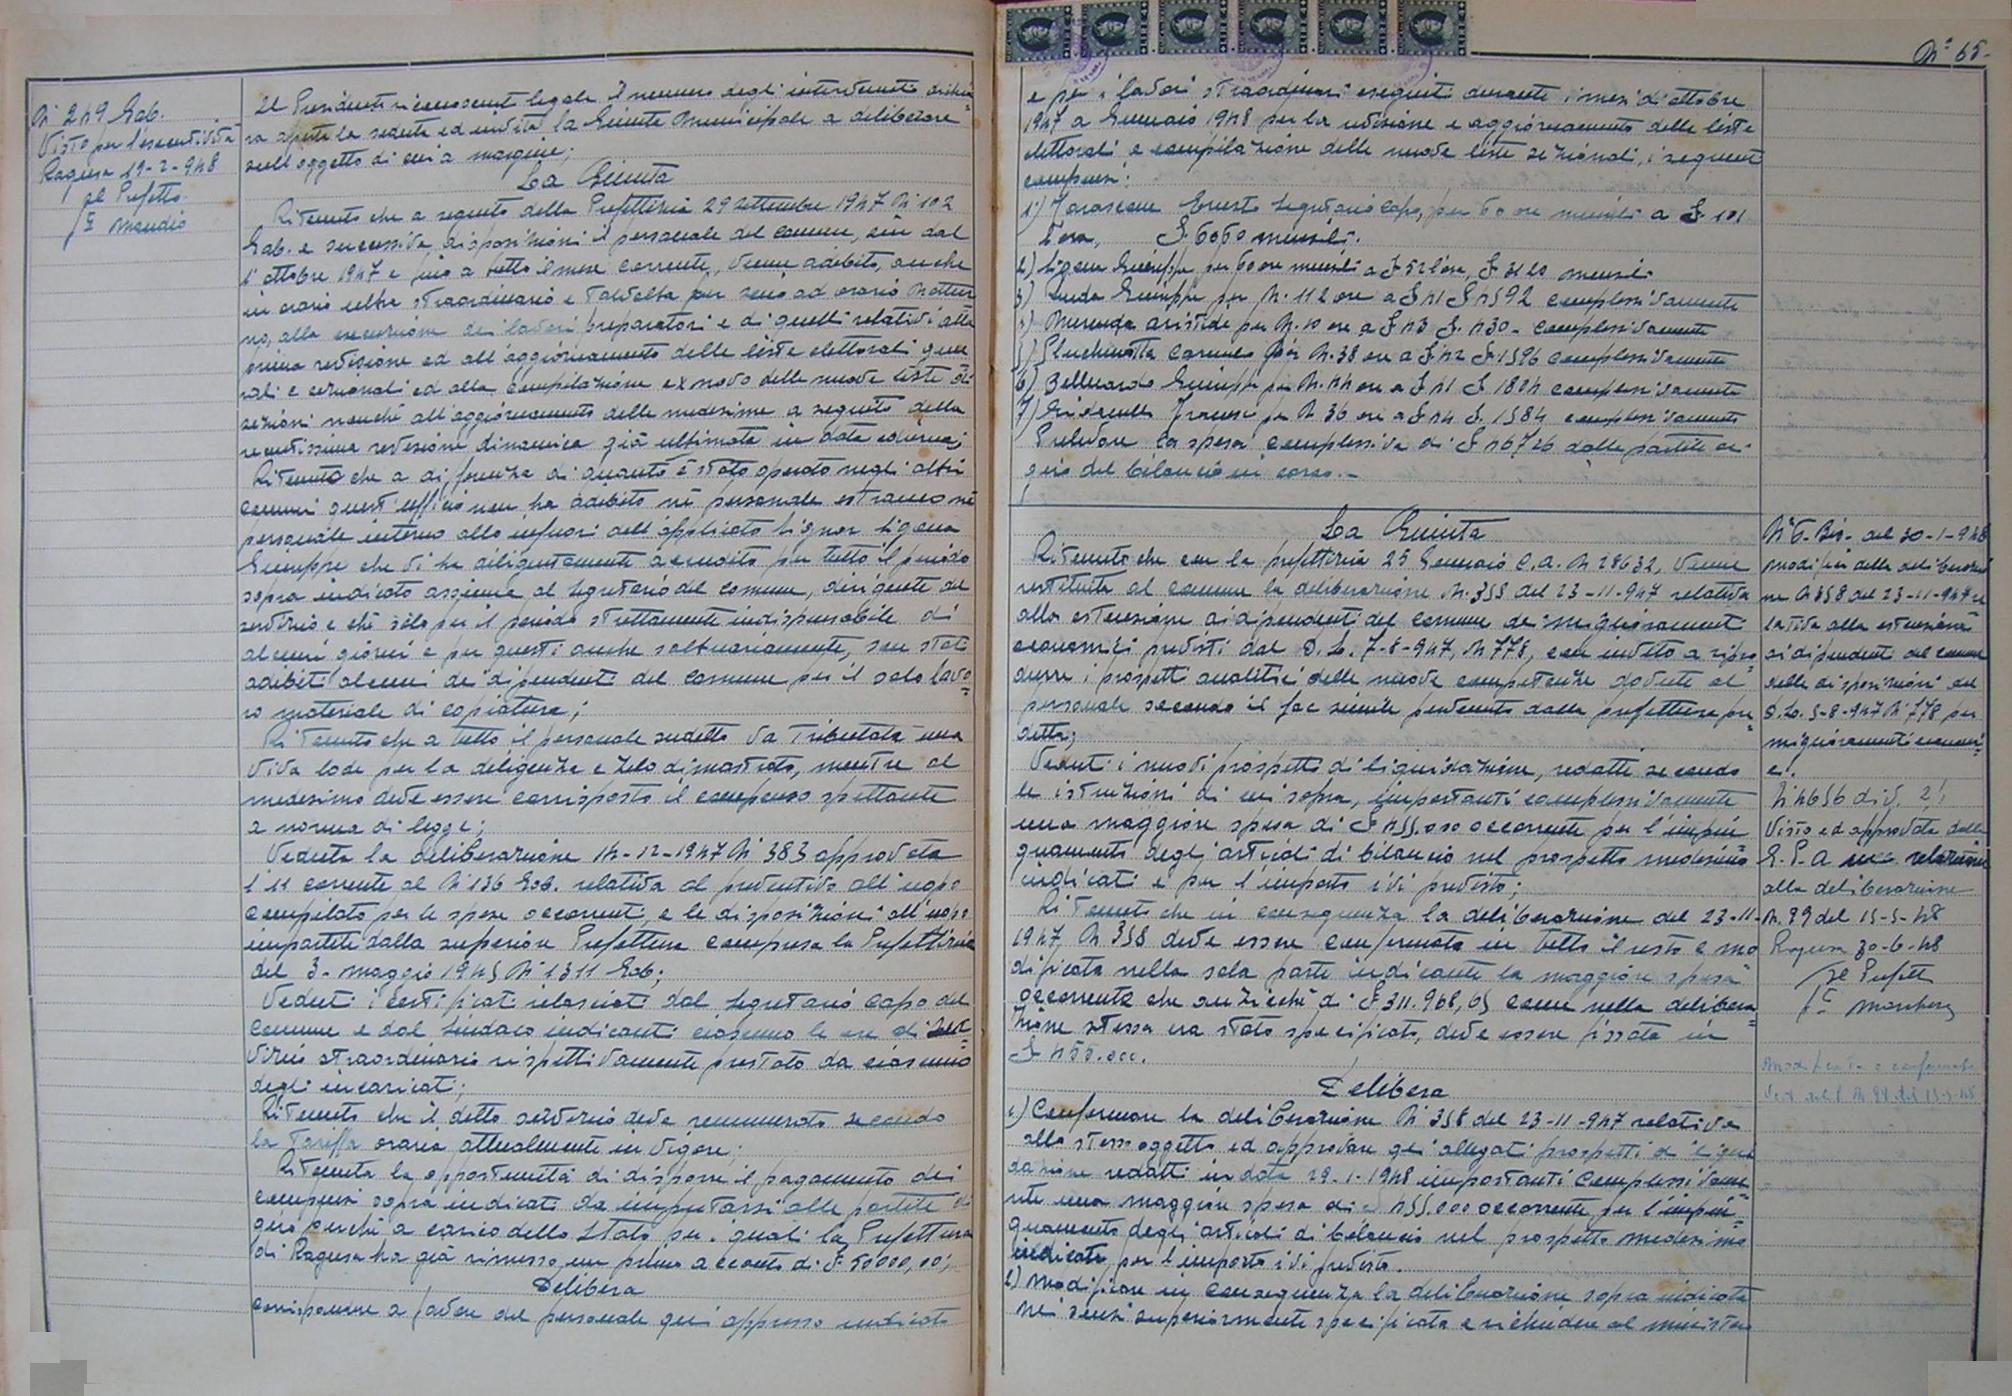 N 249 Gab.
Visto per l'esecutività
Ragusa 19-2-948
Il Prefetto
Il Presidente riconosciuto legale il numero degli intervenuti dichia-
ra aperta la seduta ed invita la Giunta Municipale a deliberare
sull'oggetto di cui a margine;
La Giunta
Ritenuto che a seguito della Prefettizia 29 settembre 1947 N 102
Gab. e successive disposizioni il personale del comune, sin dal
1° ottobre 1947 e fino a tutto il mese corrente, venne adibito, anche
in orario extra straordinario e talvolta per ad orario nottur
no, alla esecuzione dei lavori preparatori e di quelli relativi alla
prima revisione ed all'aggiornamento delle liste elettorali gene
rali e sezionali ed alla compilazione ex novo delle nuove liste di
sezioni nonché all'aggiornamento delle medesime a seguito della
recentissima revisione dinamica già ultimata in data odierna;
Ritenuto che a differenza di quanto è stato operato negli altri
comuni quest'ufficio non ha adibito né personale estraneo né
personale interno allo infuori dell'applicato Signor Ligama
Giuseppe che vi ha diligentemente accudito per tutto il periodo
sopra indicato assieme al Segretario del comune, dirigente del
servizio e che solo per il periodo strettamente indispensabile di
alcuni giorni e per questi anche saltuariamente, son stati
adibiti alcuni dei dipendenti del comune per il solo lavo=
ro materiale di copiatura;
Ritenuto che a tutto il personale sudetto va tributata una
viva lode per la diligenza e zelo dimostrato, mentre al
medesimo deve essere corrisposto il compenso spettante
a norma di legge;
Veduta la deliberazione 14-12-1947 N° 383 approvata
l'11 corrente al N° 136 Gab. relativa al preventivo all'uopo
compilato per le spese occorrenti, e le disposizioni all'uopo
impartite dalla superiore Prefettura compresa la Prefettizia
del 3 maggio 1945 N° 1311 Gab;
Veduti i certificati rilasciati dal Segretario Capo del
comune e dal Sindaco indicanti ciascuno le ore di ser=
vizio straordinario rispettivamente prestato da ciascuno
degli incaricati;
Ritenuto che il detto servizio deve remunerato secondo
la tariffa oraria attualmente in vigore;
Ritenuta la opportunità di disporre il pagamento dei
compensi sopra indicati da imputarsi alle partite di
giro perché a carico dello Stato per i quali la Prefettura
di Ragusa ha già rimesso un primo acconto di £ 50000,00;
Delibera
Corrispondere a favore del personale qui appresso indicato
N° 65-
e per i lavori straordinari eseguiti durante i mesi di ottobre
1947 a Gennaio 1948 per la revisione e aggiornamento delle liste
elettorali e compilazione delle nuove liste sezionali, i seguenti
compensi:
1) Ernesto Segretario Capo, per 60 ore mensili a £ 101
l'ora, £. 6060 mensili.
2) Ligama Giuseppe per 60 ore mensili a £ 52 l'ora, £ 3120 mensili
3) Giuseppe per N. 112 ore a £ 41 £ 4592 complessivamente
4) Aristide per N. 10 ore a £ 43 £. 430- complessivamente
5) Carmelo per N. 38 ore a £ 42 £ 1596 complessivamente
6) Belluardo Giuseppe per N. 44 ore a £ 41 £ 1804 complessivamente
7) per N 36 ore a £ 44 £. 1584 complessivamente
Prelevare la spesa complessiva di £ 46726 dalle partite di
giro del bilancio in corso.-
La Giunta
Ritenuto che con la prefettizia 25 Gennaio C.A. N 28632, venne
restituita al comune la deliberazione N. 358 del 23-11-947 relativa
alla estensione ai dipendenti del comune dei miglioramenti
economici previsti dal D.L. 7-8-947, N 778, con invito a ripro
durre i prospetti analitici delle nuove competenze dovute al
personale secondo il fac simile pervenuto dalla prefettura pre
detta;
Veduti i nuovi prospetti di liquidazione, redatti secondo
le istruzioni di cui sopra, importanti complessivamente
una maggiore spesa di £ 455.000 occorrente per l'impin
guamento degli articoli di bilancio nel prospetto medesimo
indicati e per l'importo ivi previsto;
Ritenuto che in conseguenza la deliberazione del 23-11-
1947, N 358 deve essere confermata in tutto il resto e mo
dificata nella sola parte indicante la maggiore spesa
occorrente che anzicchè di £ 311.968,65 come nella delibera=
zione stessa era stato specificato, deve essere fissata in
£ 455.000.
Delibera
1) Confermare la deliberazione N° 358 del 23-11-947 relativa
allo stesso oggetto ed approvare gli allegati prospetti di liqui
dazione redatti in data 29-1-1948 importanti complessivame=
nte una maggiore spesa di £ 455.000 occorrente per l'impin=
guamento degli articoli di bilancio nel prospetto medesimo
indicato, per l'importo ivi previsto.
2) Modificare in conseguenza la deliberazione sopra indicata
nei sensi superiormente specificata e richiedere al ministero
N° 6 Bis- del 30-1-948
modifica della deliberazio
ne N 358 del 23-11-947 re
lativa alla estensione
ai dipendenti del comune
delle disposizioni del
D.L. 5-8-947 N° 778 per
miglioramenti economi=
ci.
N 4656 div. 2/1
Visto ed approvata dalla
G.P.A relazione
alla deliberazione
N. 99 del 15-5-48
Ragusa 30-6-48
Il Prefetto
Modificata e confermata